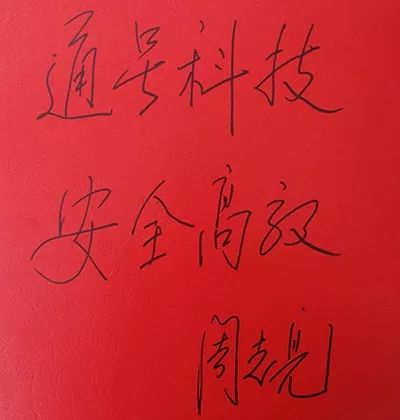 通号科技
安全高效
周志亮